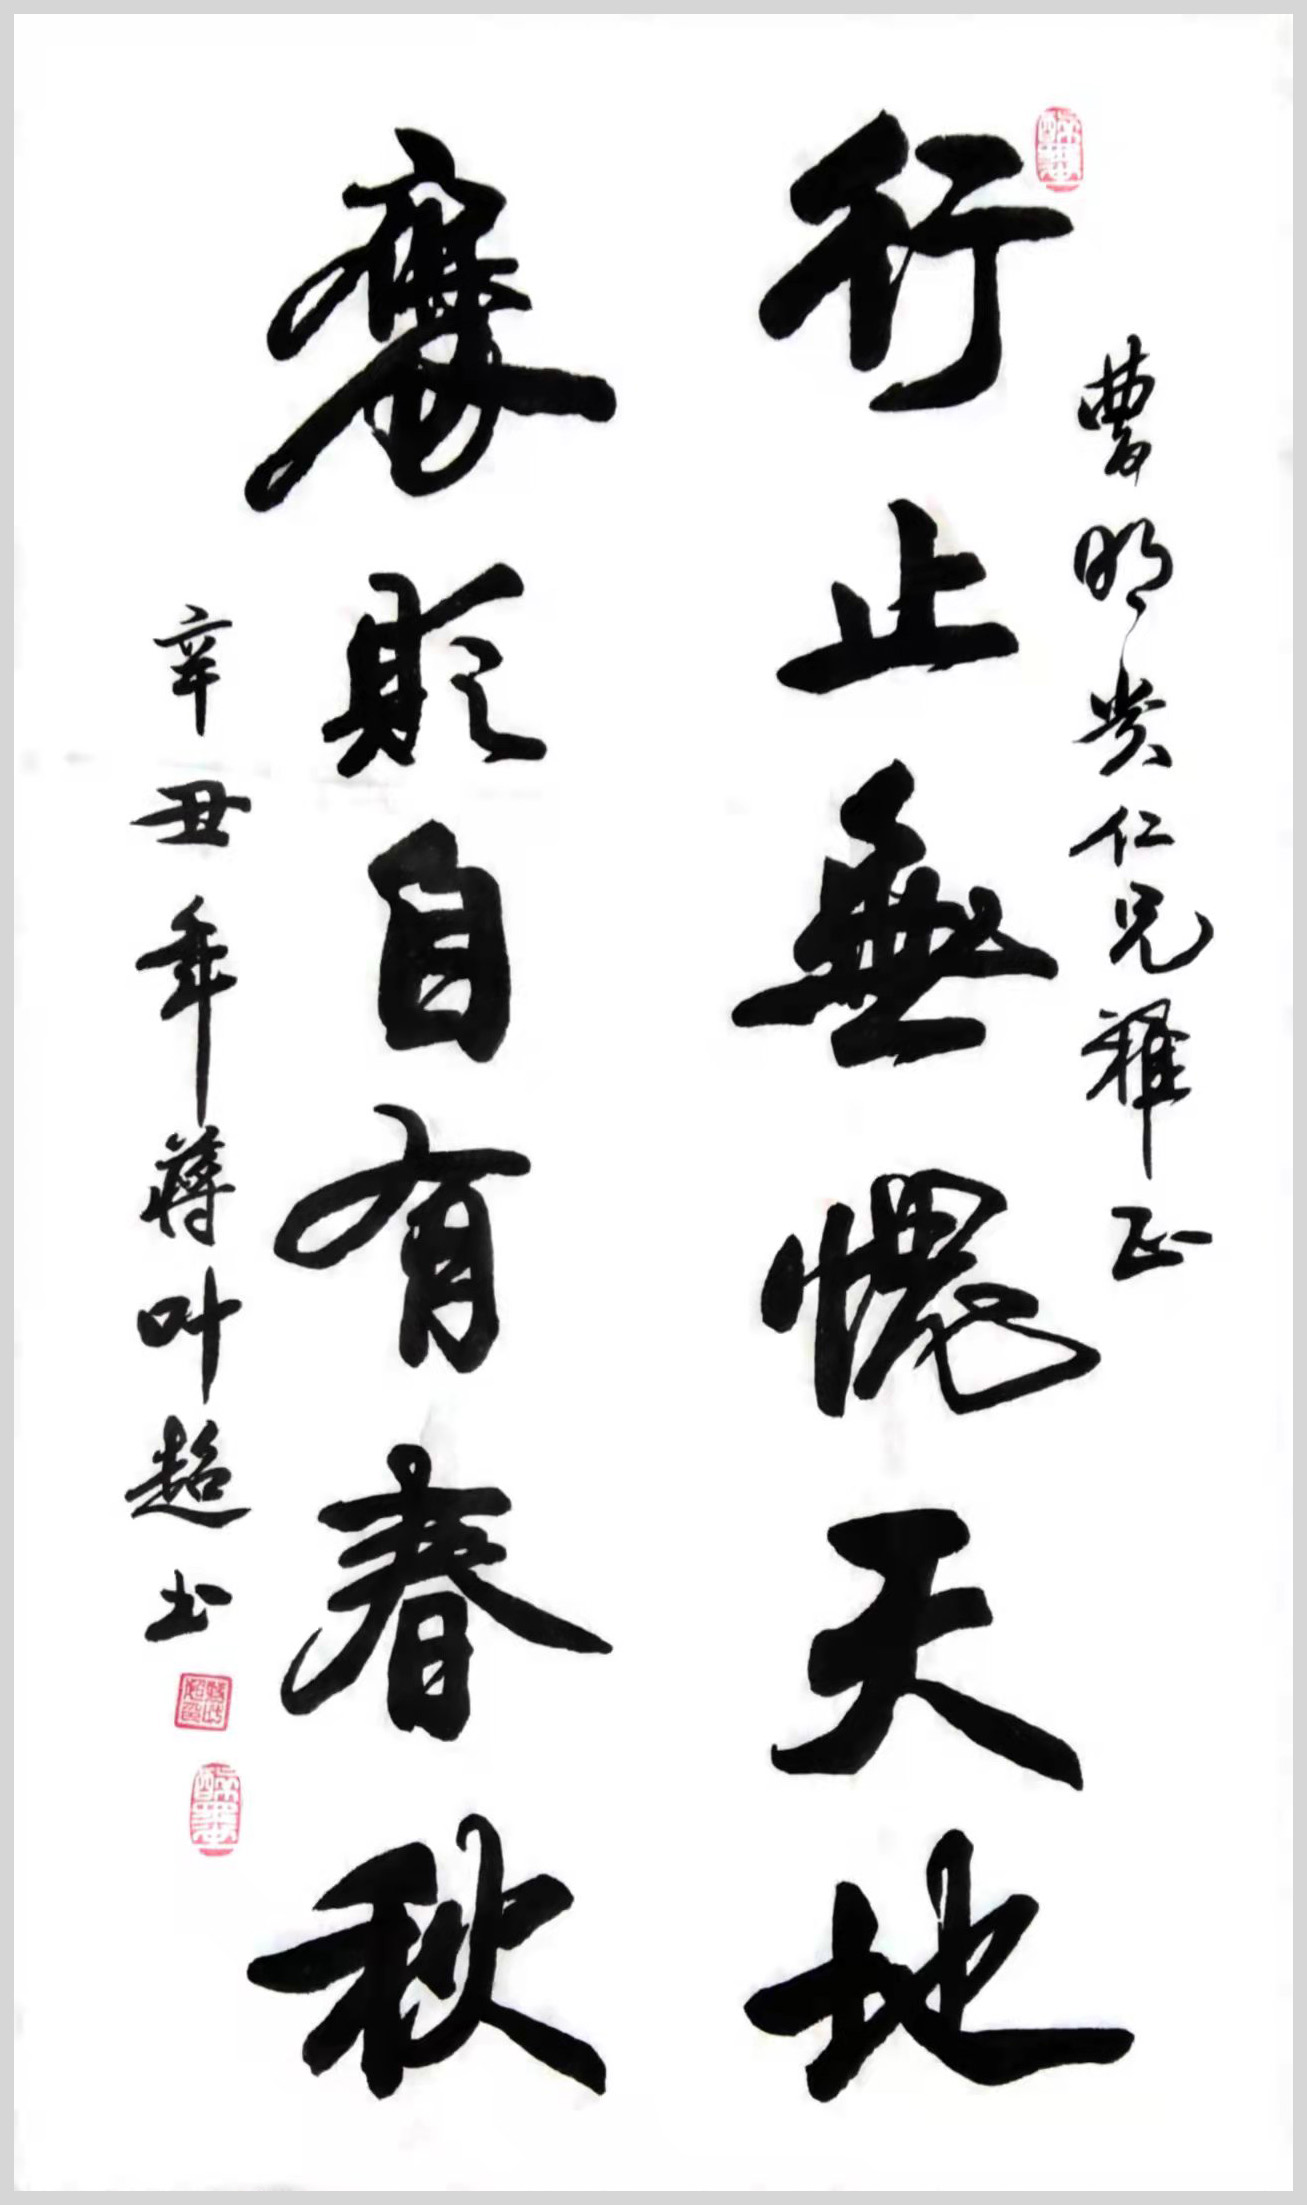 曹明贵仁兄雅正
行止無愧天地
褒貶自有春秋
辛丑年蒋叶超书